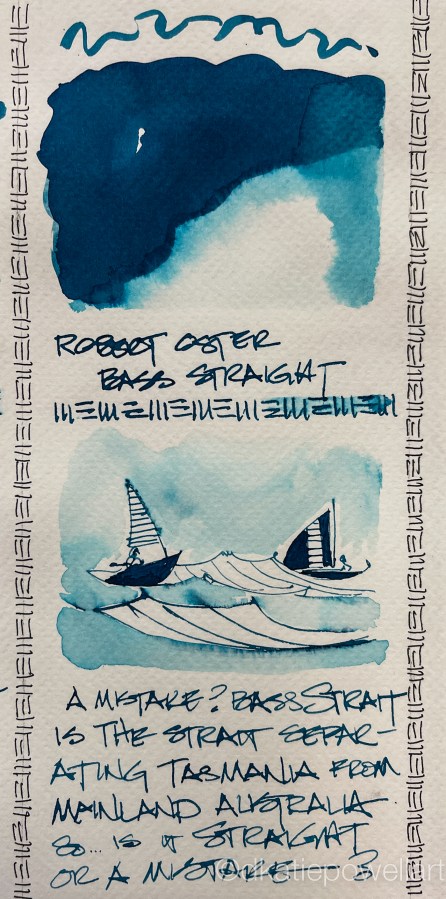 ROBERT OSTER
BASS STRAIGHT
A MISTAKE? BASS STRAIT
IS THE STRAIT SEPAR-
ATING TASMANIA FROM
MAINLAND AUSTRALIA.
SO... IS IT STRAIGHT
OR A MISTAKE ...?
©dkatiepowellart